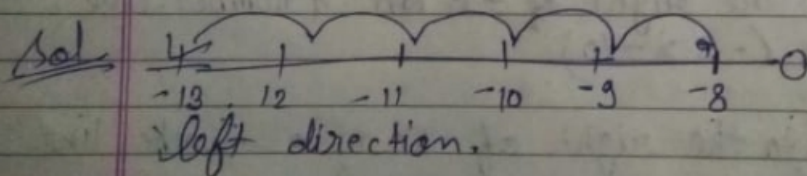 Sol
-13 12 -11 -10 -9 -8 0
left direction.